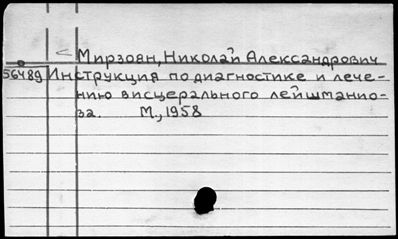 Мирзоян, Николай Александрович
56489 Инструкция по диагностике и лече-
нию висцерального лейшманио-
за. М., 1958